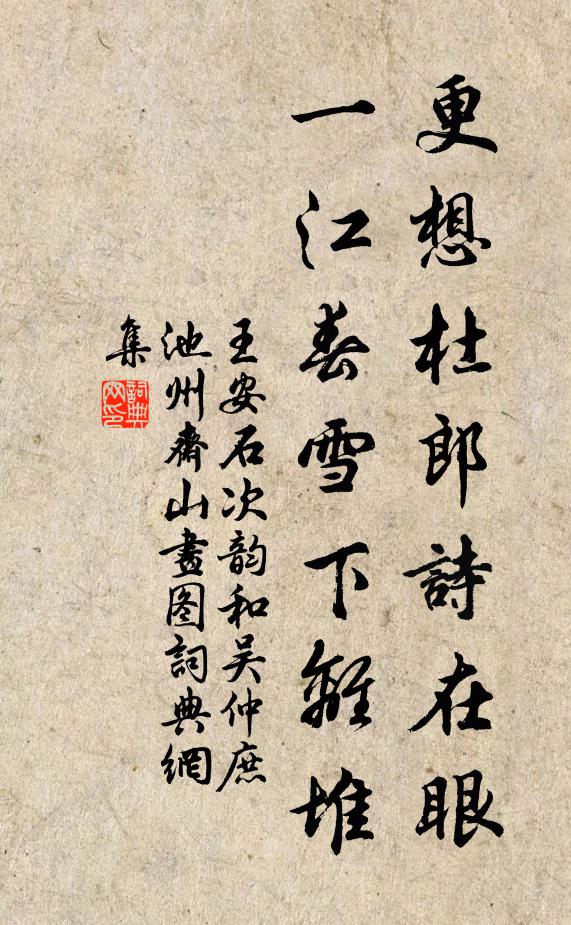 更想杜郎詩在眼
一江春雪下離堆
王安石次韵和吴仲庶
池州齊山畫图詞典網
集
詞典网印